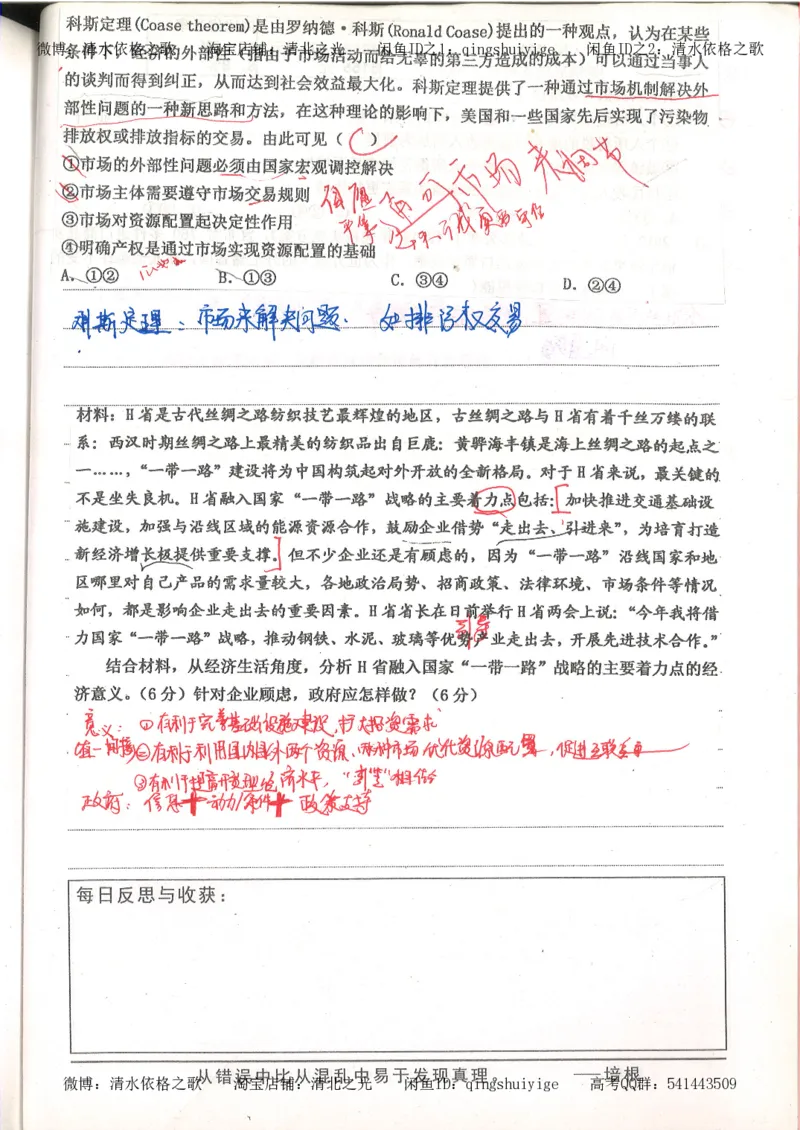 科斯定理(Coase theorem)是由罗纳德·科斯(Ronald Coase)提出的一种观点，认为在某些
微博：清水依格之歌 淘宝店铺：清北之光 闲鱼ID之1：qingshuiyige 闲鱼ID之2：清水依格之歌
条件下，经济的外部性（指由于市场活动而给无辜的第三方造成的成本）可以通过当事人
的谈判而得到纠正，从而达到社会效益最大化。科斯定理提供了一种通过市场机制解决外
部性问题的一种新思路和方法，在这种理论的影响下，美国和一些国家先后实现了污染物
排放权或排放指标的交易。由此可见（ C ）
①市场的外部性问题必须由国家宏观调控解决
②市场主体需要遵守市场交易规则
③市场对资源配置起决定性作用
④明确产权是通过市场实现资源配置的基础
A．①② B．①③ C．③④ D．②④
科斯定理：市场来解决问题． 如排污权交易
材料：H省是古代丝绸之路纺织技艺最辉煌的地区，古丝绸之路与H省有着千丝万缕的联
系：西汉时期丝绸之路上最精美的纺织品出自巨鹿；黄骅海丰镇是海上丝绸之路的起点之
一……，“一带一路”建设将为中国构筑起对外开放的全新格局。对于H省来说，最关键的
不是坐失良机。H省融入国家“一带一路”战略的主要着力点包括：加快推进交通基础设
施建设，加强与沿线区域的能源资源合作，鼓励企业借势“走出去、引进来”，为培育打造
新经济增长极提供重要支撑。但不少企业还是有顾虑的，因为“一带一路”沿线国家和地
区哪里对自己产品的需求量较大，各地政治局势、招商政策、法律环境、市场条件等情况
如何，都是影响企业走出去的重要因素。H省省长在日前举行H省两会上说：“今年我将借
力国家“一带一路”战略，推动钢铁、水泥、玻璃等优势产业走出去，开展先进技术合作。”
结合材料，从经济生活角度，分析H省融入国家“一带一路”战略的主要着力点的经
济意义。（6分）针对企业顾虑，政府应怎样做？（6分）
意义：①有利于完善基础设施建设，扩大投资需求
②有利于利用国内国外两个资源、两种市场，优化资源配置，促进互联互通
③有利于提高开放型经济水平，
政府：信息＋动力/条件＋政策支持
每日反思与收获：
从错误中比从混乱中易于发现真理。 ——培根
微博：清水依格之歌 淘宝店铺：清北之光 闲鱼ID：qingshuiyige 高考QQ群：541443509